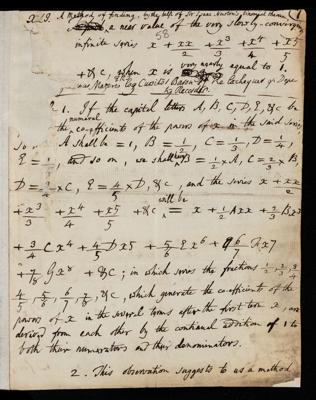 A Method of finding, by the help of Sir Isaac Newton's binomial theorem,
a near value of the very slowly-converging
58
infinite series x + xx/2 + x^3/3 + x^4/4 + x^5/5
+ &c, when x is very nearly equal to 1.
By Francis Maseres Esq Cursitor Baron of the Exchequer
1. If the capital letters A, B, C, D, E, &c be
the numeral co-efficients of the powers of x in the said series,
A shall be = 1, B = 1/2, C = 1/3, D = 1/4,
E = 1/5, and so on, we shall have B = 1/2 × A, C = 2/3 × B,
D = 3/4 × C, E = 4/5 × D, &c, and the series x + xx/2
+ x^3/3 + x^4/4 + x5/5 + &c will be = x + 1/2 Axx + 2/3 Bx^3
+ 3/4 Cx^4 + 4/5 Dx5 + 5/6 Ex^6 + 6/7 Fx7
+ 7/8 Gx^8 + &c; in which series the fractions 1/2, 2/3, 3/4,
4/5, 5/6, 6/7, 7/8, &c, which generate the co-efficients of the
powers of x in the several terms after the first term x, are
derived from each other by the continual addition of 1 to
both their numerators and their denominators.
2. This observation suggests to us a method